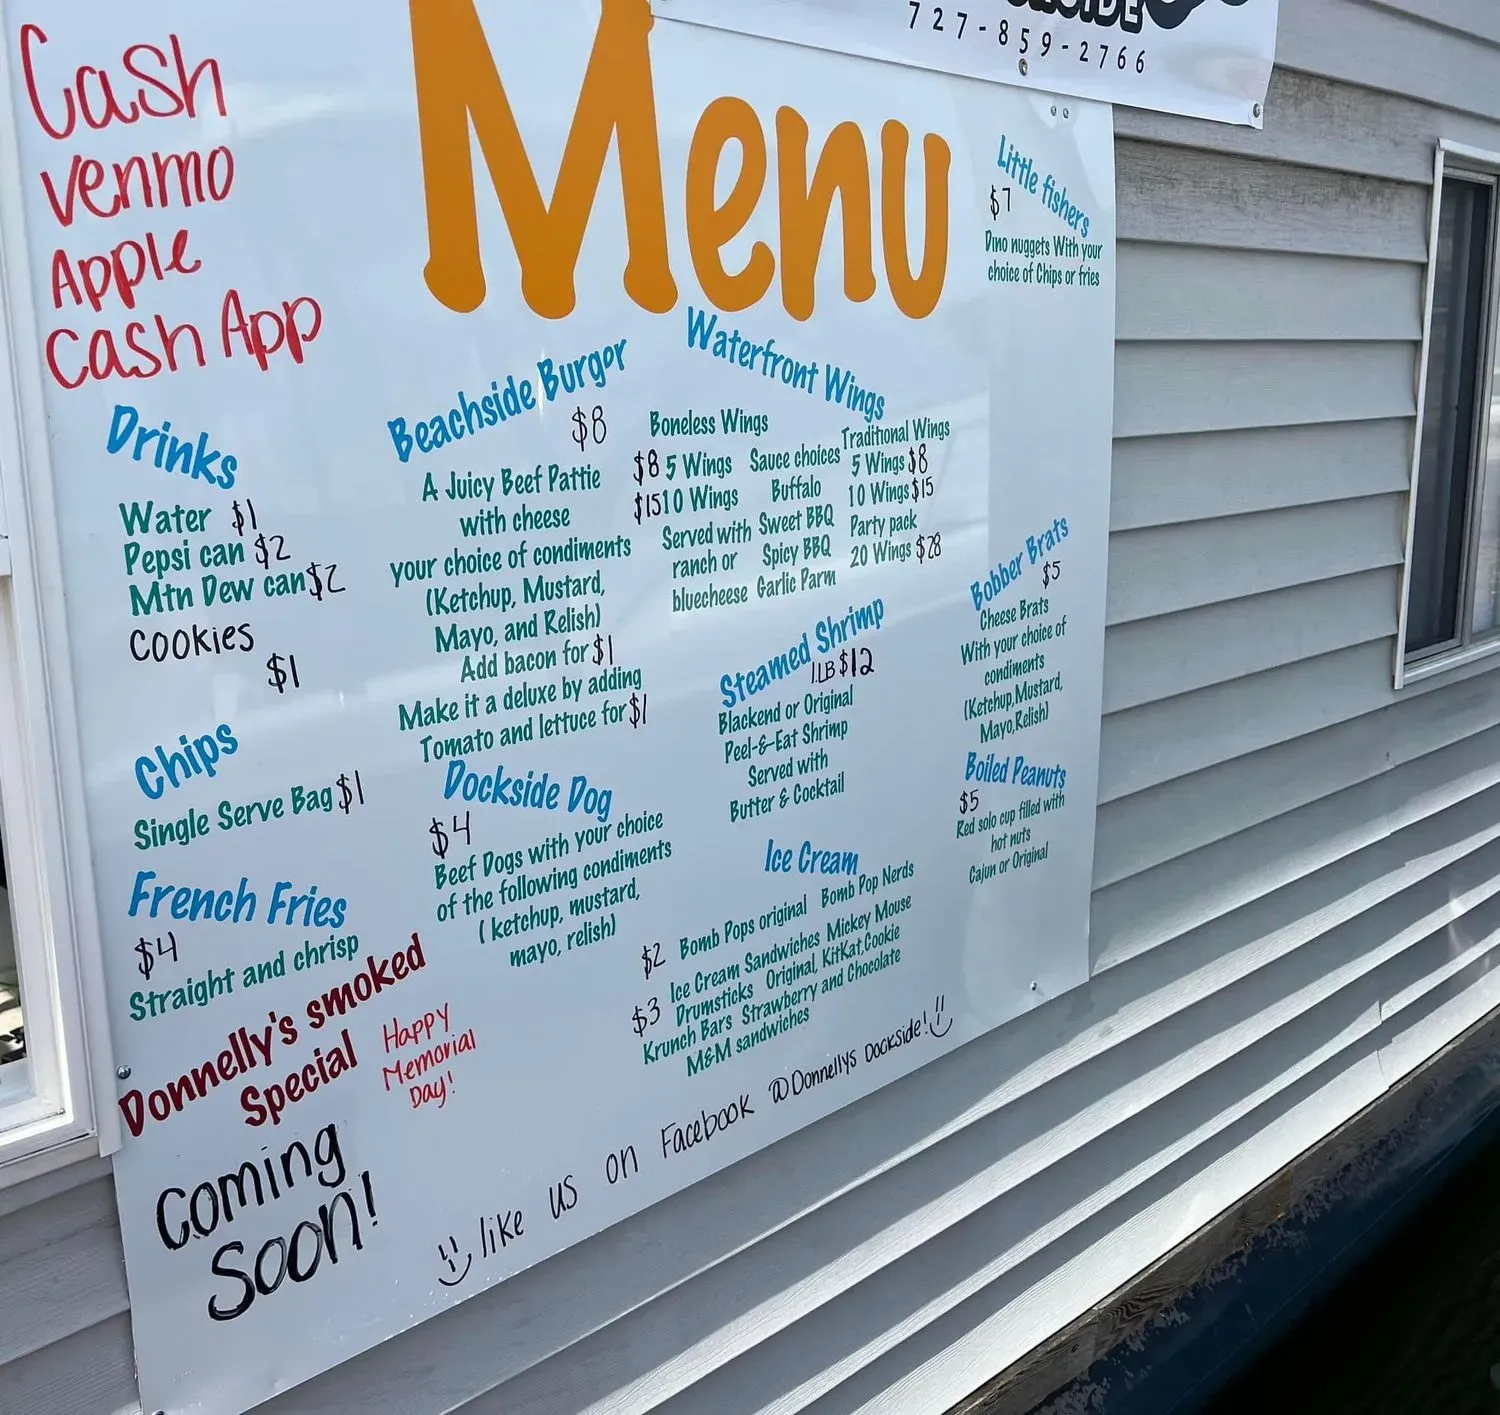 727-859-2766
Cash
venmo
Apple
Cash App
Menu
Little fishers
$7
Dino nuggets With your
choice of Chips or fries
Drinks
Water $1
Pepsi can $2
Mtn Dew can $2
Cookies
$1
Chips
Single Serve Bag $1
French Fries
$4
Straight and chrisp
Donnelly's smoked
Special
Happy
Memorial
Day!
Coming
Soon!
Beachside Burger
$8
A Juicy Beef Pattie
with cheese
your choice of condiments
(Ketchup, Mustard,
Mayo, and Relish)
Add bacon for $1
Make it a deluxe by adding
Tomato and lettuce for $1
Dockside Dog
$4
Beef Dogs with your choice
of the following condiments
( ketchup, mustard,
mayo, relish)
Waterfront Wings
Boneless Wings
$8 5 Wings
$15 10 Wings
Served with
ranch or
bluecheese
Sauce choices
Buffalo
Sweet BBQ
Spicy BBQ
Garlic Parm
Traditional Wings
5 Wings $8
10 Wings $15
Party pack
20 Wings $28
Steamed Shrimp
1LB $12
Blackend or Original
Peel-&-Eat Shrimp
Served with
Butter & Cocktail
Ice Cream
$2 Bomb Pops original Bomb Pop Nerds
Ice Cream Sandwiches Mickey Mouse
$3 Drumsticks Original, KitKat,Cookie
Krunch Bars Strawberry and Chocolate
M&M sandwiches
Bobber Brats
$5
Cheese Brats
With your choice of
condiments
(Ketchup,Mustard,
Mayo,Relish)
Boiled Peanuts
$5
Red solo cup filled with
hot nuts
Cajun or Original
like us on Facebook @Donnellys Dockside!